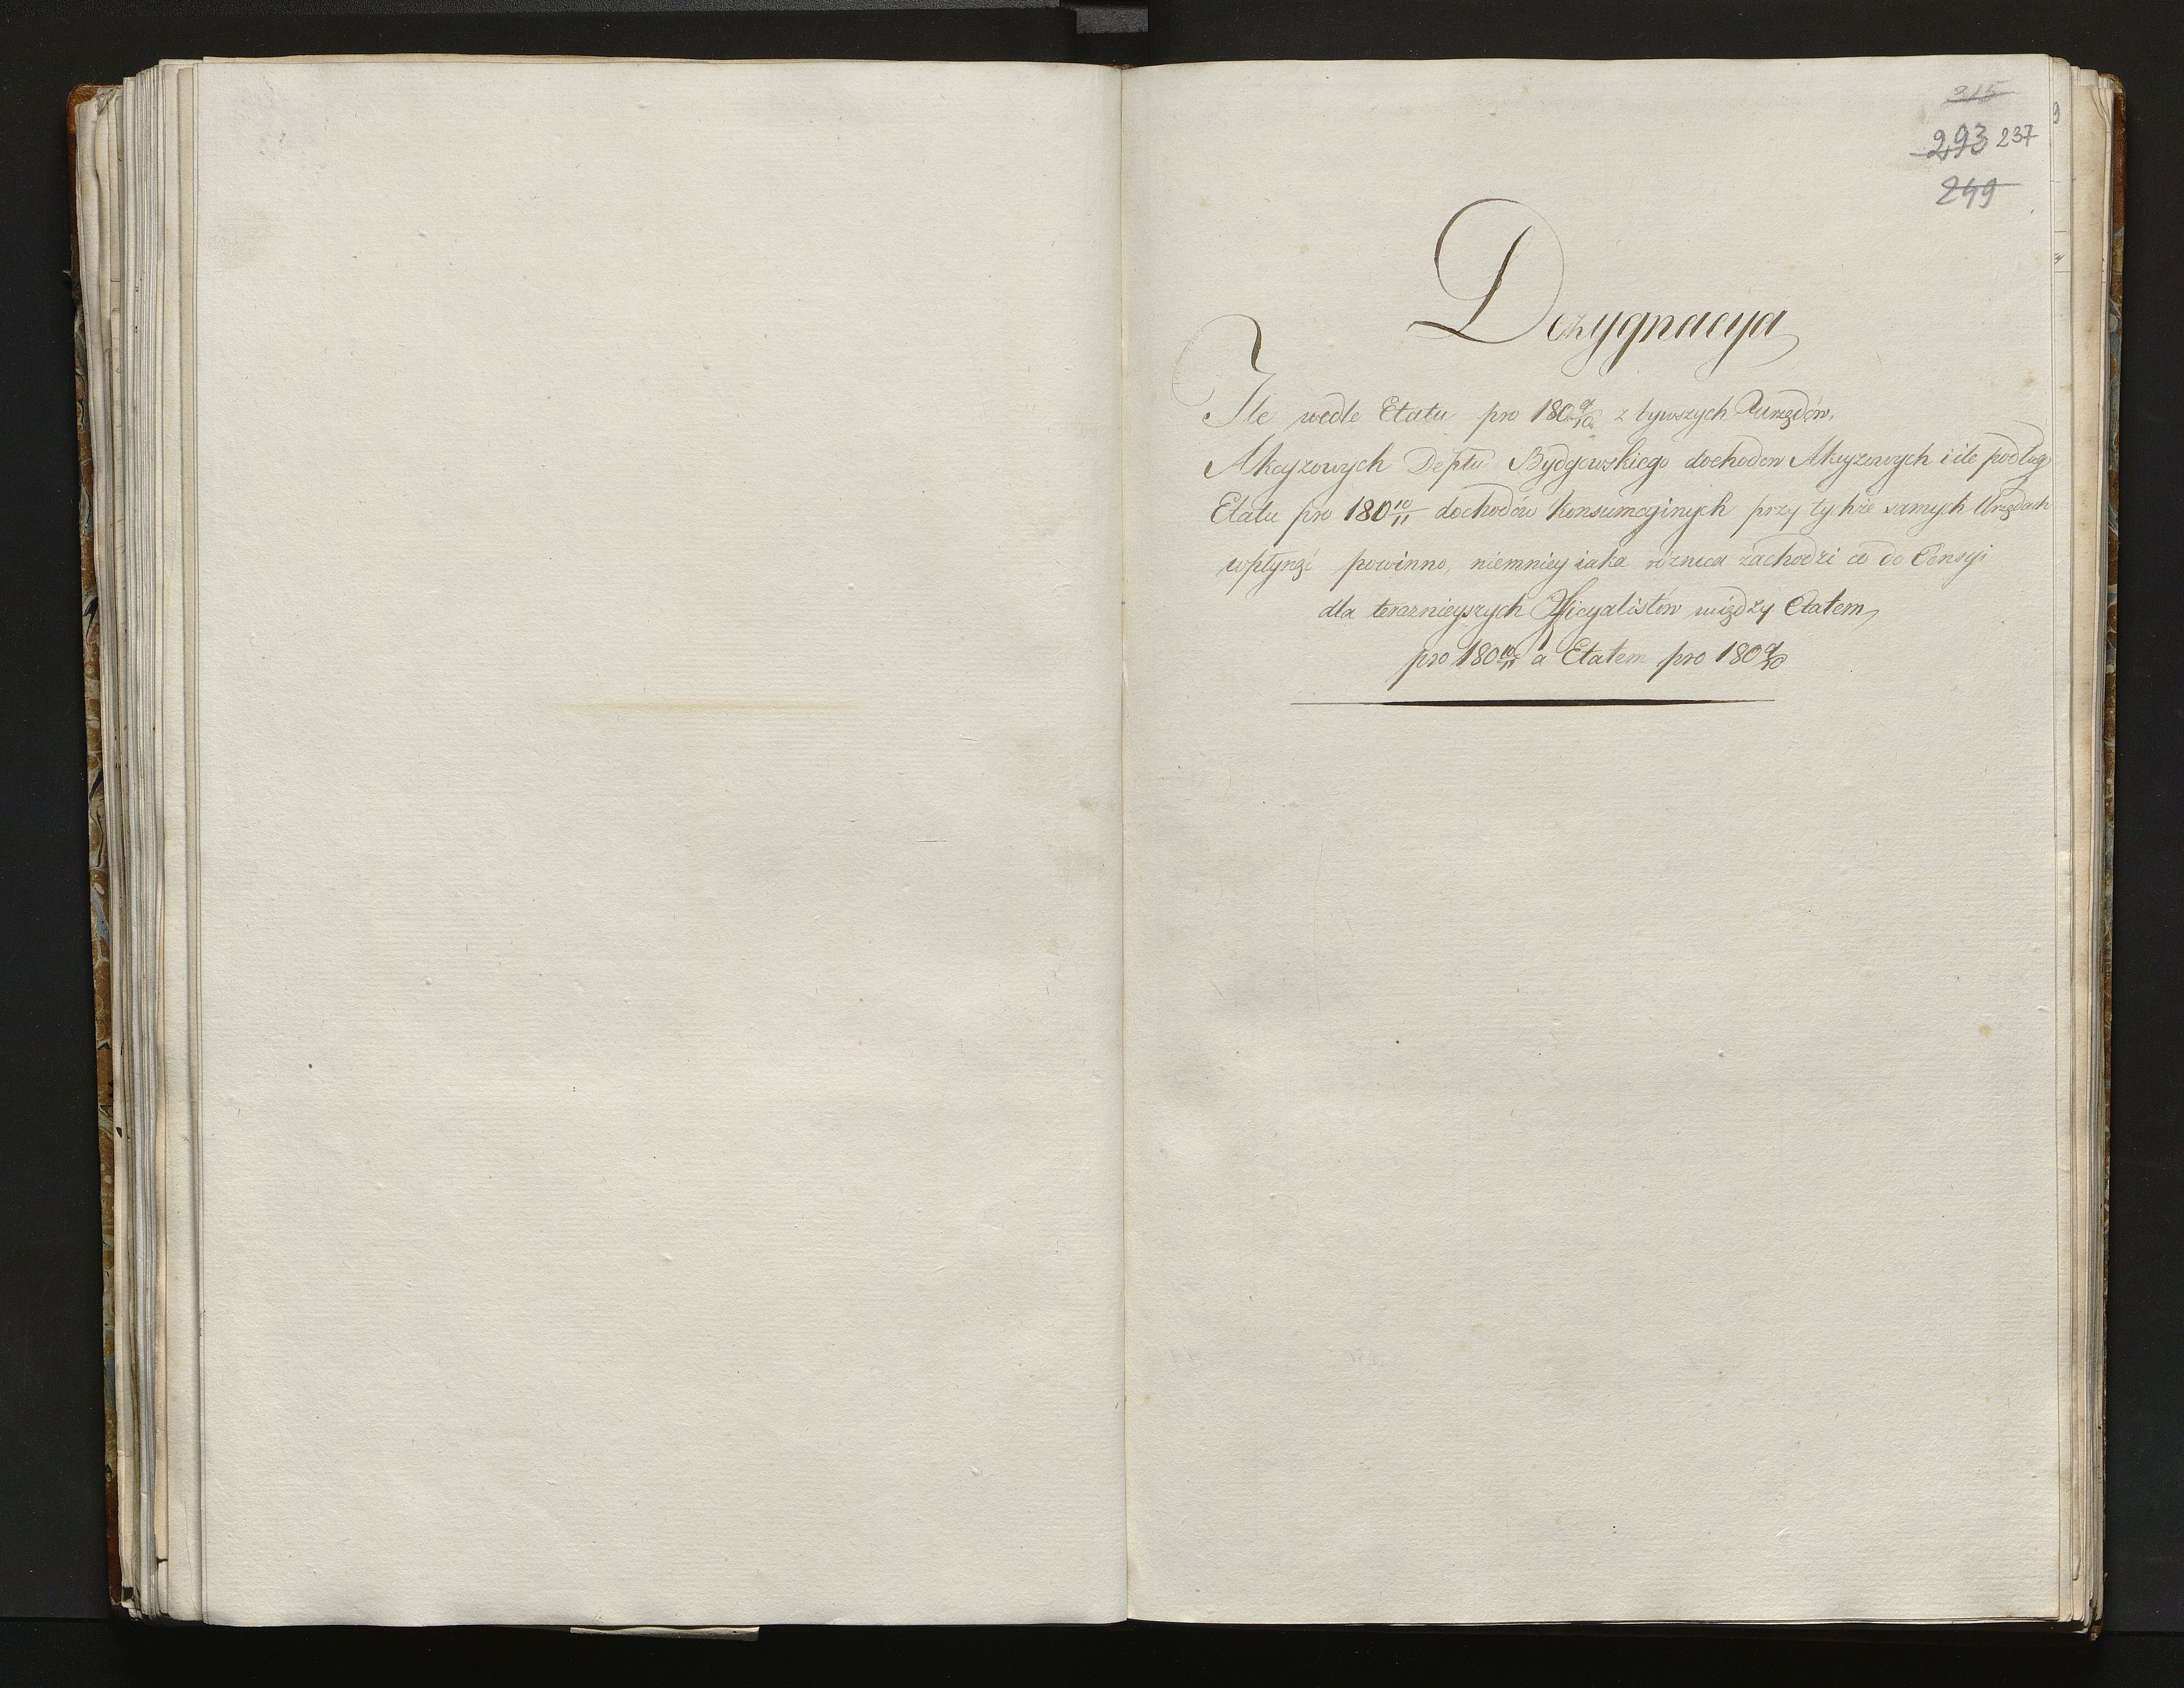 315
293 237
249
Dezygnacya
Ile wedle Etatu pro 180 9/10 z bywszych Urzędów,
Akcyzowych Deptu Bydgowskiego dochodow Akcyzowych i ile podług
Etatu pro 180 10/11 dochodów konsumcyinych przy tychże samych Urzędach
wpłynąć powinno, niemniey iaka róznica zachodzi co do Pensyi
dla teraznieyszych Officyalistów między Etatem,
pro 180 10/11 a Etatem pro 180 9/10